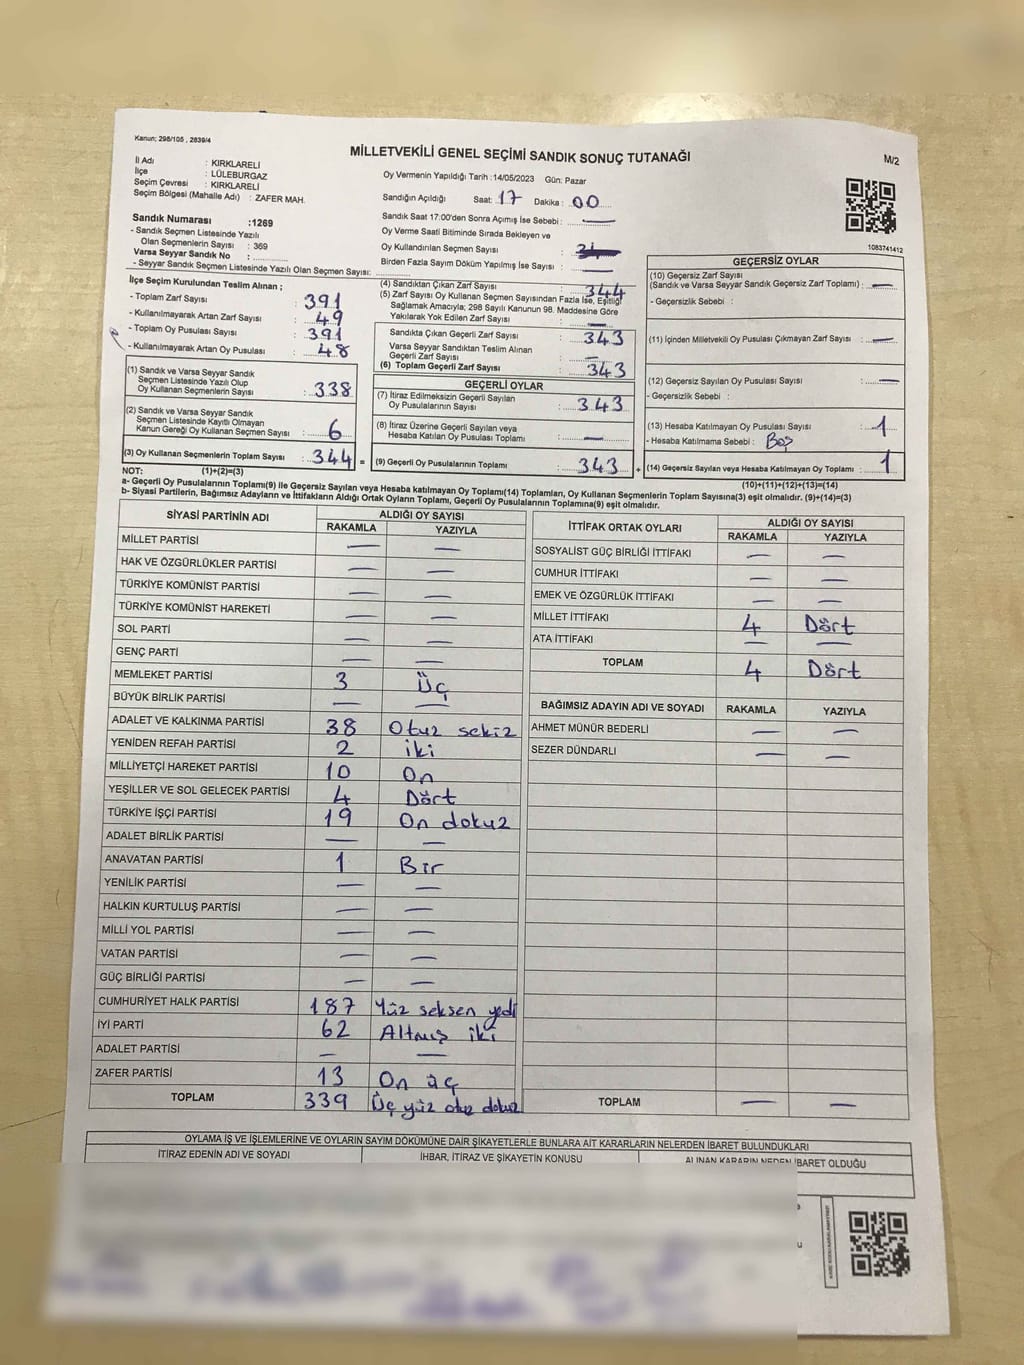 Kanun; 298/105 , 2839/4
MİLLETVEKİLİ GENEL SEÇİMİ SANDIK SONUÇ TUTANAĞI
M/2
İl Adı : KIRKLARELİ
İlçe : LÜLEBURGAZ
Seçim Çevresi : KIRKLARELİ
Seçim Bölgesi (Mahalle Adı) : ZAFER MAH.
Sandık Numarası :1269
- Sandık Seçmen Listesinde Yazılı
Olan Seçmenlerin Sayısı : 369
Varsa Seyyar Sandık No :
- Seyyar Sandık Seçmen Listesinde Yazılı Olan Seçmen Sayısı:
Oy Vermenin Yapıldığı Tarih :14/05/2023 Gün: Pazar
Sandığın Açıldığı Saat: 17 Dakika : 00
Sandık Saat 17:00'den Sonra Açımış İse Sebebi : —
Oy Verme Saati Bitiminde Sırada Bekleyen ve
Oy Kullandırılan Seçmen Sayısı :
Birden Fazla Sayım Döküm Yapılmış İse Sayısı : —
1083741412
İlçe Seçim Kurulundan Teslim Alınan ;
- Toplam Zarf Sayısı : 391
- Kullanılmayarak Artan Zarf Sayısı : 49
- Toplam Oy Pusulası Sayısı : 391
- Kullanılmayarak Artan Oy Pusulası : 48
(1) Sandık ve Varsa Seyyar Sandık
Seçmen Listesinde Yazılı Olup
Oy Kullanan Seçmenlerin Sayısı : 338
(2) Sandık ve Varsa Seyyar Sandık
Seçmen Listesinde Kayıtlı Olmayan
Kanun Gereği Oy Kullanan Seçmen Sayısı : 6
(3) Oy Kullanan Seçmenlerin Toplam Sayısı : 344 =
(4) Sandıktan Çıkan Zarf Sayısı : 344
(5) Zarf Sayısı Oy Kullanan Seçmen Sayısından Fazla İse, Eşitliği
Sağlamak Amacıyla; 298 Sayılı Kanunun 98. Maddesine Göre
Yakılarak Yok Edilen Zarf Sayısı : —
Sandıkta Çıkan Geçerli Zarf Sayısı : 343
Varsa Seyyar Sandıktan Teslim Alınan
Geçerli Zarf Sayısı : —
(6) Toplam Geçerli Zarf Sayısı : 343
GEÇERLİ OYLAR
(7) İtiraz Edilmeksizin Geçerli Sayılan
Oy Pusulalarının Sayısı : 343
(8) İtiraz Üzerine Geçerli Sayılan veya
Hesaba Katılan Oy Pusulası Toplamı : —
(9) Geçerli Oy Pusulalarının Toplamı : 343 +
GEÇERSİZ OYLAR
(10) Geçersiz Zarf Sayısı
(Sandık ve Varsa Seyyar Sandık Geçersiz Zarf Toplamı) : —
- Geçersizlik Sebebi :
(11) İçinden Milletvekili Oy Pusulası Çıkmayan Zarf Sayısı : —
(12) Geçersiz Sayılan Oy Pusulası Sayısı : —
- Geçersizlik Sebebi :
(13) Hesaba Katılmayan Oy Pusulası Sayısı : 1
- Hesaba Katılmama Sebebi : Boş
(14) Geçersiz Sayılan veya Hesaba Katılmayan Oy Toplamı : 1
NOT: (1)+(2)=(3)
(10)+(11)+(12)+(13)=(14)
a- Geçerli Oy Pusulaların Toplamı(9) ile Geçersiz Sayılan veya Hesaba katılmayan Oy Toplamı(14) Toplamları, Oy Kullanan Seçmenlerin Toplam Sayısına(3) eşit olmalıdır. (9)+(14)=(3)
b- Siyasi Partilerin, Bağımsız Adayların ve İttifakların Aldığı Ortak Oyların Toplamı, Geçerli Oy Pusulalarının Toplamına(9) eşit olmalıdır.
SİYASİ PARTİNİN ADI ALDIĞI OY SAYISI
RAKAMLA YAZIYLA
MİLLET PARTİSİ — —
HAK VE ÖZGÜRLÜKLER PARTİSİ — —
TÜRKİYE KOMÜNİST PARTİSİ — —
TÜRKİYE KOMÜNİST HAREKETİ — —
SOL PARTİ — —
GENÇ PARTİ — —
MEMLEKET PARTİSİ 3 Üç
BÜYÜK BİRLİK PARTİSİ — —
ADALET VE KALKINMA PARTİSİ 38 Otuz sekiz
YENİDEN REFAH PARTİSİ 2 İki
MİLLİYETÇİ HAREKET PARTİSİ 10 On
YEŞİLLER VE SOL GELECEK PARTİSİ 4 Dört
TÜRKİYE İŞÇİ PARTİSİ 19 On dokuz
ADALET BİRLİK PARTİSİ — —
ANAVATAN PARTİSİ 1 Bir
YENİLİK PARTİSİ — —
HALKIN KURTULUŞ PARTİSİ — —
MİLLİ YOL PARTİSİ — —
VATAN PARTİSİ — —
GÜÇ BİRLİĞİ PARTİSİ — —
CUMHURİYET HALK PARTİSİ 187 Yüz seksen yedi
İYİ PARTİ 62 Altmış iki
ADALET PARTİSİ — —
ZAFER PARTİSİ 13 On üç
TOPLAM 339 Üç yüz otuz dokuz
İTTİFAK ORTAK OYLARI ALDIĞI OY SAYISI
RAKAMLA YAZIYLA
SOSYALİST GÜÇ BİRLİĞİ İTTİFAKI — —
CUMHUR İTTİFAKI — —
EMEK VE ÖZGÜRLÜK İTTİFAKI — —
MİLLET İTTİFAKI 4 Dört
ATA İTTİFAKI — —
TOPLAM 4 Dört
BAĞIMSIZ ADAYIN ADI VE SOYADI RAKAMLA YAZIYLA
AHMET MÜNÜR BEDERLİ — —
SEZER DÜNDARLI — —
TOPLAM — —
OYLAMA İŞ VE İŞLEMLERİNE VE OYLARIN SAYIM DÖKÜMÜNE DAİR ŞİKAYETLERLE BUNLARA AİT KARARLARIN NELERDEN İBARET BULUNDUKLARI
İTİRAZ EDENİN ADI VE SOYADI İHBAR, İTİRAZ VE ŞİKAYETİN KONUSU ALINAN KARARIN NEDEN İBARET OLDUĞU